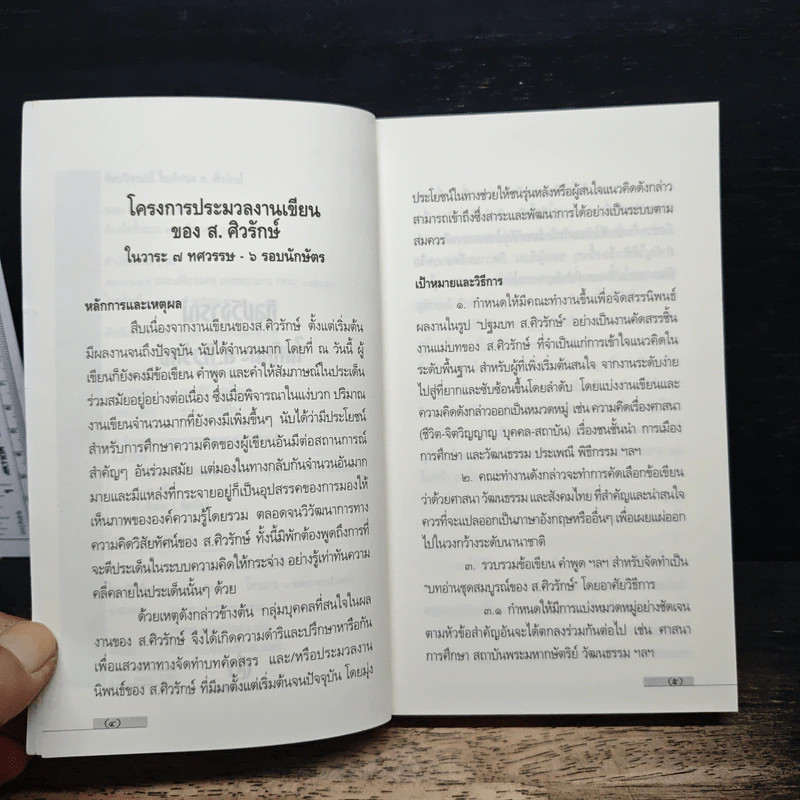 โครงการประมวลงานเขียน
ของ ส. ศิวรักษ์
ในวาระ ๗ ทศวรรษ - ๖ รอบนักษัตร
หลักการและเหตุผล
สืบเนื่องจากงานเขียนของส.ศิวรักษ์ ตั้งแต่เริ่มต้น
มีผลงานจนถึงปัจจุบัน นับได้จำนวนมาก โดยที่ ณ วันนี้ ผู้
เขียนก็ยังคงมีข้อเขียน คำพูด และคำให้สัมภาษณ์ในประเด็น
ร่วมสมัยอยู่อย่างต่อเนื่อง ซึ่งเมื่อพิจารณาในแง่บวก ปริมาณ
งานเขียนจำนวนมากที่ยังคงมีเพิ่มขึ้นๆ นับได้ว่ามีประโยชน์
สำหรับการศึกษาความคิดของผู้เขียนอันมีต่อสถานการณ์
สำคัญๆ อันร่วมสมัย แต่มองในทางกลับกันจำนวนอันมาก
มายและมีแหล่งที่กระจายอยู่ก็เป็นอุปสรรคของการมองให้
เห็นภาพขององค์ความรู้โดยรวม ตลอดจนวิวัฒนาการทาง
ความคิดวิสัยทัศน์ของ ส.ศิวรักษ์ ทั้งนี้มิพักต้องพูดถึงการที่
จะตีประเด็นในระบบความคิดให้กระจ่าง อย่างรู้เท่าทันความ
คลี่คลายในประเด็นนั้นๆ ด้วย
ด้วยเหตุดังกล่าวข้างต้น กลุ่มบุคคลที่สนใจในผล
งานของ ส.ศิวรักษ์ จึงได้เกิดความดำริและปรึกษาหารือกัน
เพื่อแสวงหาทางจัดทำบทคัดสรร และ/หรือประมวลงาน
นิพนธ์ของ ส.ศิวรักษ์ ที่มีมาตั้งแต่เริ่มต้นจนปัจจุบัน โดยมุ่ง
(๔)
ประโยชน์ในทางช่วยให้ชนรุ่นหลังหรือผู้สนใจแนวคิดดังกล่าว
สามารถเข้าถึงซึ่งสาระและพัฒนาการได้อย่างเป็นระบบตาม
สมควร
เป้าหมายและวิธีการ
๑. กำหนดให้มีคณะทำงานขึ้นเพื่อจัดสรรนิพนธ์
ผลงานในรูป "ปฐมบท ส.ศิวรักษ์" อย่างเป็นงานคัดสรรชิ้น
งานแม่บทของ ส.ศิวรักษ์ ที่จำเป็นแก่การเข้าใจแนวคิดใน
ระดับพื้นฐาน สำหรับผู้ที่เพิ่งเริ่มต้นสนใจ จากงานระดับง่าย
ไปสู่ที่ยากและซับซ้อนขึ้นโดยลำดับ โดยแบ่งงานเขียนและ
ความคิดดังกล่าวออกเป็นหมวดหมู่ เช่น ความคิดเรื่องศาสนา
(ชีวิต-จิตวิญญาณ บุคคล-สถาบัน) เรื่องชนชั้นนำ การเมือง
การศึกษา และวัฒนธรรม ประเพณี พิธีกรรม ฯลฯ
๒. คณะทำงานดังกล่าวจะทำการคัดเลือกข้อเขียน
ว่าด้วยศาสนา วัฒนธรรม และสังคมไทย ที่สำคัญและน่าสนใจ
ควรที่จะแปลออกเป็นภาษาอังกฤษหรืออื่นๆ เพื่อเผยแผ่ออก
ไปในวงกว้างระดับนานาชาติ
๓. รวบรวมข้อเขียน คำพูด ฯลฯ สำหรับจัดทำเป็น
"บทอ่านชุดสมบูรณ์ของ ส.ศิวรักษ์" โดยอาศัยวิธีการ
๓.๑ กำหนดให้มีการแบ่งหมวดหมู่อย่างชัดเจน
ตามหัวข้อสำคัญอันจะได้ตกลงร่วมกันต่อไป เช่น ศาสนา
การศึกษา สถาบันพระมหากษัตริย์ วัฒนธรรม ฯลฯ
(๕)